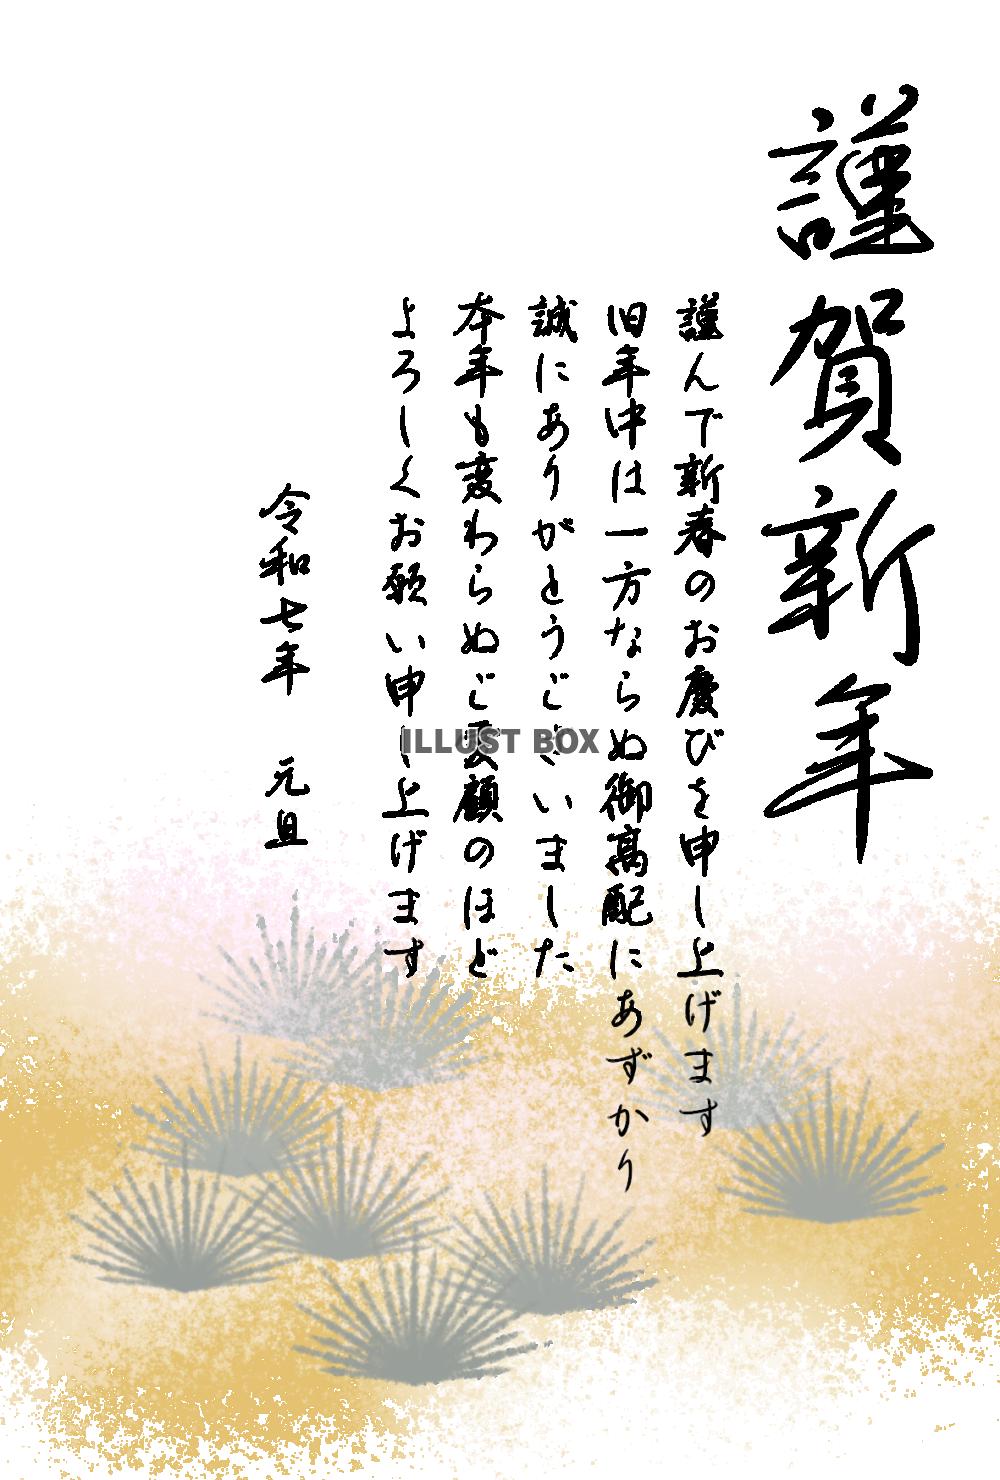 謹賀新年
謹んで新春のお慶びを申し上げます
旧年中は一方ならぬ御高配にあずかり
誠にありがとうございました
本年も変わらぬご愛顧のほど
よろしくお願い申し上げます
令和七年　元旦
ILLUST BOX